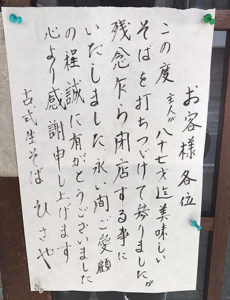 お客様各位
この度主人が八十七才迄美味しい
そばを打ちつづけて参りましたが
残念乍ら閉店する事に
いたしました永い間ご愛顧
の程誠に有がとうございました
心より感謝申し上げます
古式生そば ひさや